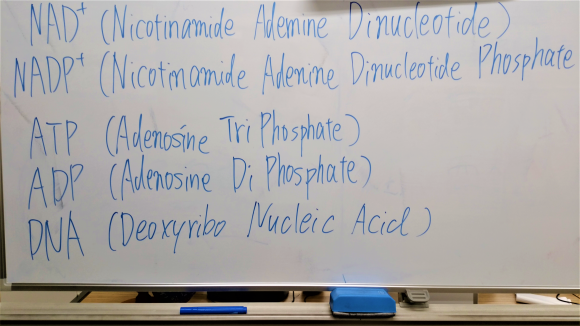 NAD⁺ (Nicotinamide Ademine Dinucleotide)
NADP⁺ (Nicotinamide Adenine Dinucleotide Phosphate
ATP (Adenosine Tri Phosphate)
ADP (Adenosine Di Phosphate)
DNA (Deoxyribo Nucleic Acid)